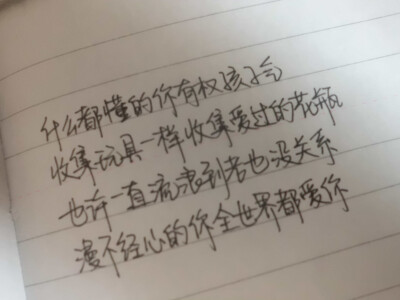 什么都懂的你有权孩子气
收集玩具一样收集爱过的花瓶
也许一直流浪到老也没关系
漫不经心的你全世界都爱你